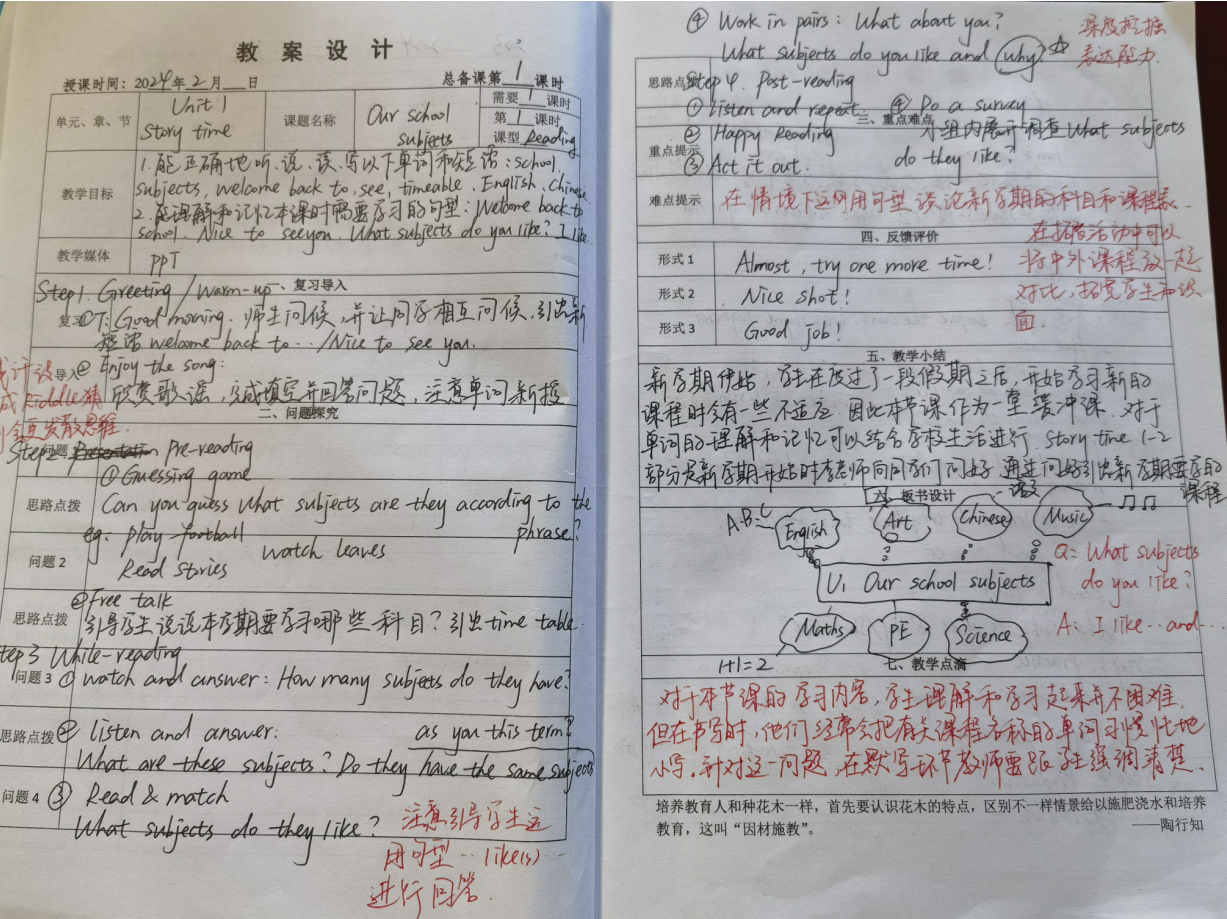 教 案 设 计
授课时间：2024年2月__日 总备课第 1 课时
单元、章、节 Unit 1 Story time 课题名称 Our school subjects 需要 1 课时
第 1 课时
课型 Reading
教学目标 1.能正确地听、说、读、写以下单词和短语：school
subjects, welcome back to, see, timeable、English、Chinese
2.能理解和记忆本课时需要学习的句型：Welcome back to
school. Nice to see you. What subjects do you like? I like
教学媒体 PPT
Step1. Greeting / Warm-up 一、复习导入
复习 ①T: Good morning. 师生问候，并让同学相互问候，引出新
短语 welcome back to … / Nice to see you.
导入 ② Enjoy the song:
欣赏歌谣，完成填空并回答问题，注意单词新授
设计
成 Riddle 猜
发散思维.
二、问题探究
Step2 Presentation Pre-reading
问题
① Guessing game
思路点拨 Can you guess what subjects are they according to the
phrase?
eg: play football
watch leaves
问题 2 Read stories
② Free talk
思路点拨 引导学生说说本学期要学习哪些科目？引出time table.
tep 3 While-reading
问题 3 ① watch and answer: How many subjects do they have?
思路点拨 ② listen and answer: as you this term?
What are these subjects? Do they have the same subjects
问题 4 ③ Read & match
What subjects do they like?
注意引导学生运
用句型 … like(s) …
进行回答.
④ Work in pairs: What about you?
What subjects do you like and why? ☆
深度挖掘
表达能力
思路点拨 Step 4. Post-reading
① Listen and repeat ④ Do a survey
三、重点难点
重点提示 ② Happy Reading 小组内展开调查 What subjects
③ Act it out. do they like?
难点提示 在情境下运用句型谈论新学期的科目和课程表.
四、反馈评价
形式 1 Almost, try one more time!
形式 2 Nice shot!
形式 3 Good job!
在拓展活动中可以
将中外课程放一起
对比，拓宽学生知识
面.
五、教学小结
新学期伊始，学生在度过了一段假期之后，开始学习新的
课程时会有一些不适应. 因此本节课作为一堂缓冲课. 对于
单词的理解和记忆可以结合学校生活进行. story time 1-2
部分是新学期开始时李老师向同学们问好. 通过问好引出新学期要学的
课程
六、板书设计
A.B.C English Art Chinese 语文 Music ♫♫
U1 Our school subjects
Maths PE Science
1+1=2
Q: What subjects
do you like?
A: I like … and …
七、教学点滴
对于本节课的学习内容，学生理解和学习起来并不困难.
但在书写时，他们经常会把有关课程名称目的单词习惯性地
小写. 针对这一问题，在默写环节教师要跟学生强调清楚.
培养教育人和种花木一样，首先要认识花木的特点，区别不一样情景给以施肥浇水和培养
教育，这叫“因材施教”。 ——陶行知